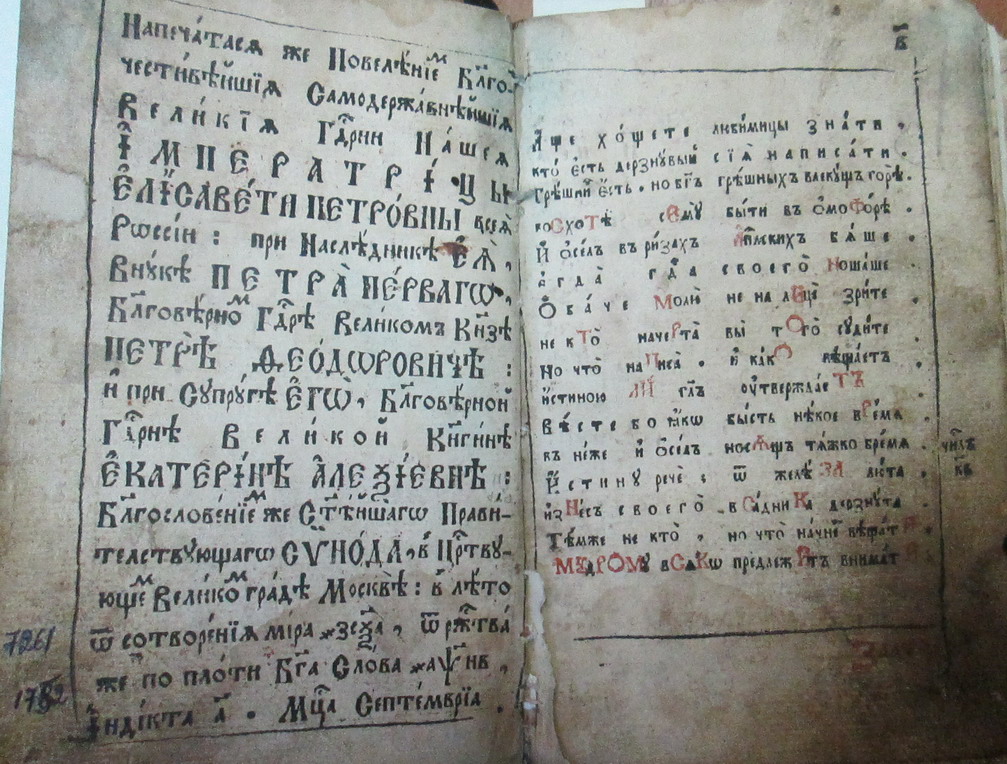 Напеча́тася же Повелѣ́нїемъ Бл҃го-
чести́вѣйшїѧ Самодержа́внѣйшїѧ
Вели́кїѧ Гдⷭ҇рни На́шеѧ
І҆МПЕРАТРІ́ЦЫ
Е҆ЛИСАВЕ́ТИ ПЕТРО́ВНЫ всеѧ̀
Рѡссі́и : при Наслѣ́дникѣ Е҆Ѧ̀,
Внꙋ́кѣ ПЕТРА̀ ПЕ́РВАГѠ,
Бл҃говѣ́рномъ Гдⷭ҇рѣ Вели́комъ Кн҃зѣ
ПЕ́ТРѢ ѲЕО́ДѠРОВИЧѢ :
и҆ при Сꙋпрꙋ́гѣ Е҆ГѠ̀, Бл҃говѣ́рной
Гдⷭ҇рнѣ Вели́кой Кн҃ги́нѣ
Е҆КАТЕРІ́НѢ А҆ЛЕѮІ́ЕВНѢ :
Бл҃гослове́нїемъ же Ст҃ѣ́йшагѡ Прави́-
телствꙋющагѡ СѴНО́ДА, в̾ Црⷭ҇твꙋ́-
юще Вели́комъ гра́дѣ Москвѣ̀ : в̾ лѣ́то
ѿ сотворе́нїѧ мі́ра ҂зсѯ҃а, ѿ ржⷭ҇тва́
же по пло́ти Бг҃а Сло́ва ҂аѱнв,
І҆нді́кта а҃ . Мцⷭ҇а Септе́мврїа .
7261
1752
в҃
А҆ще хо́щете люби́мицы зна́ти .
кто̀ є҆сть дерзнꙋ́вый сїѧ̀ написа́ти .
Грѣ́шный є҆́сть . но бг҃ъ грѣ́шныхъ влекꙋ́щъ горѣ̀ .
восхотѣ̀ семꙋ̀ бы́ти въ ѻ҆мофо́рѣ .
И҆ ѻ҆се́лъ въ ри́захъ а҆пⷭ҇лскихъ бѧ́ше .
є҆гда̀ гдⷭ҇а своего̀ ноша́ше
Ѻ҆ба́че молю̀ не на лицѐ зри́те
не кто̀ начерта̀ вы̀ того̀ сꙋди́те
Но что̀ написа̀ . и҆ ка́кѡ вѣща́етъ
и҆́стиною гл҃ъ ᲂу҆твержда́етъ
Вѣ́сте бо ꙗ҆́кѡ бы́сть нѣ́кое вре́мѧ
въ не́же и҆ ѻ҆се́лъ носѧ́щъ тѧ́жко бре́мѧ . числъ
И҆́стинꙋ речѐ : ѿ желѣ́за ᲂу҆ста̀ . кв҃
и҆знесъ своего̀ в̾са́дника дерзнꙋ́та
Тѣ́мже не кто̀ . но что̀ начнѐ вѣща́ти
Мꙋ́дромꙋ всѧ́кѡ предлежи́тъ внима́ти